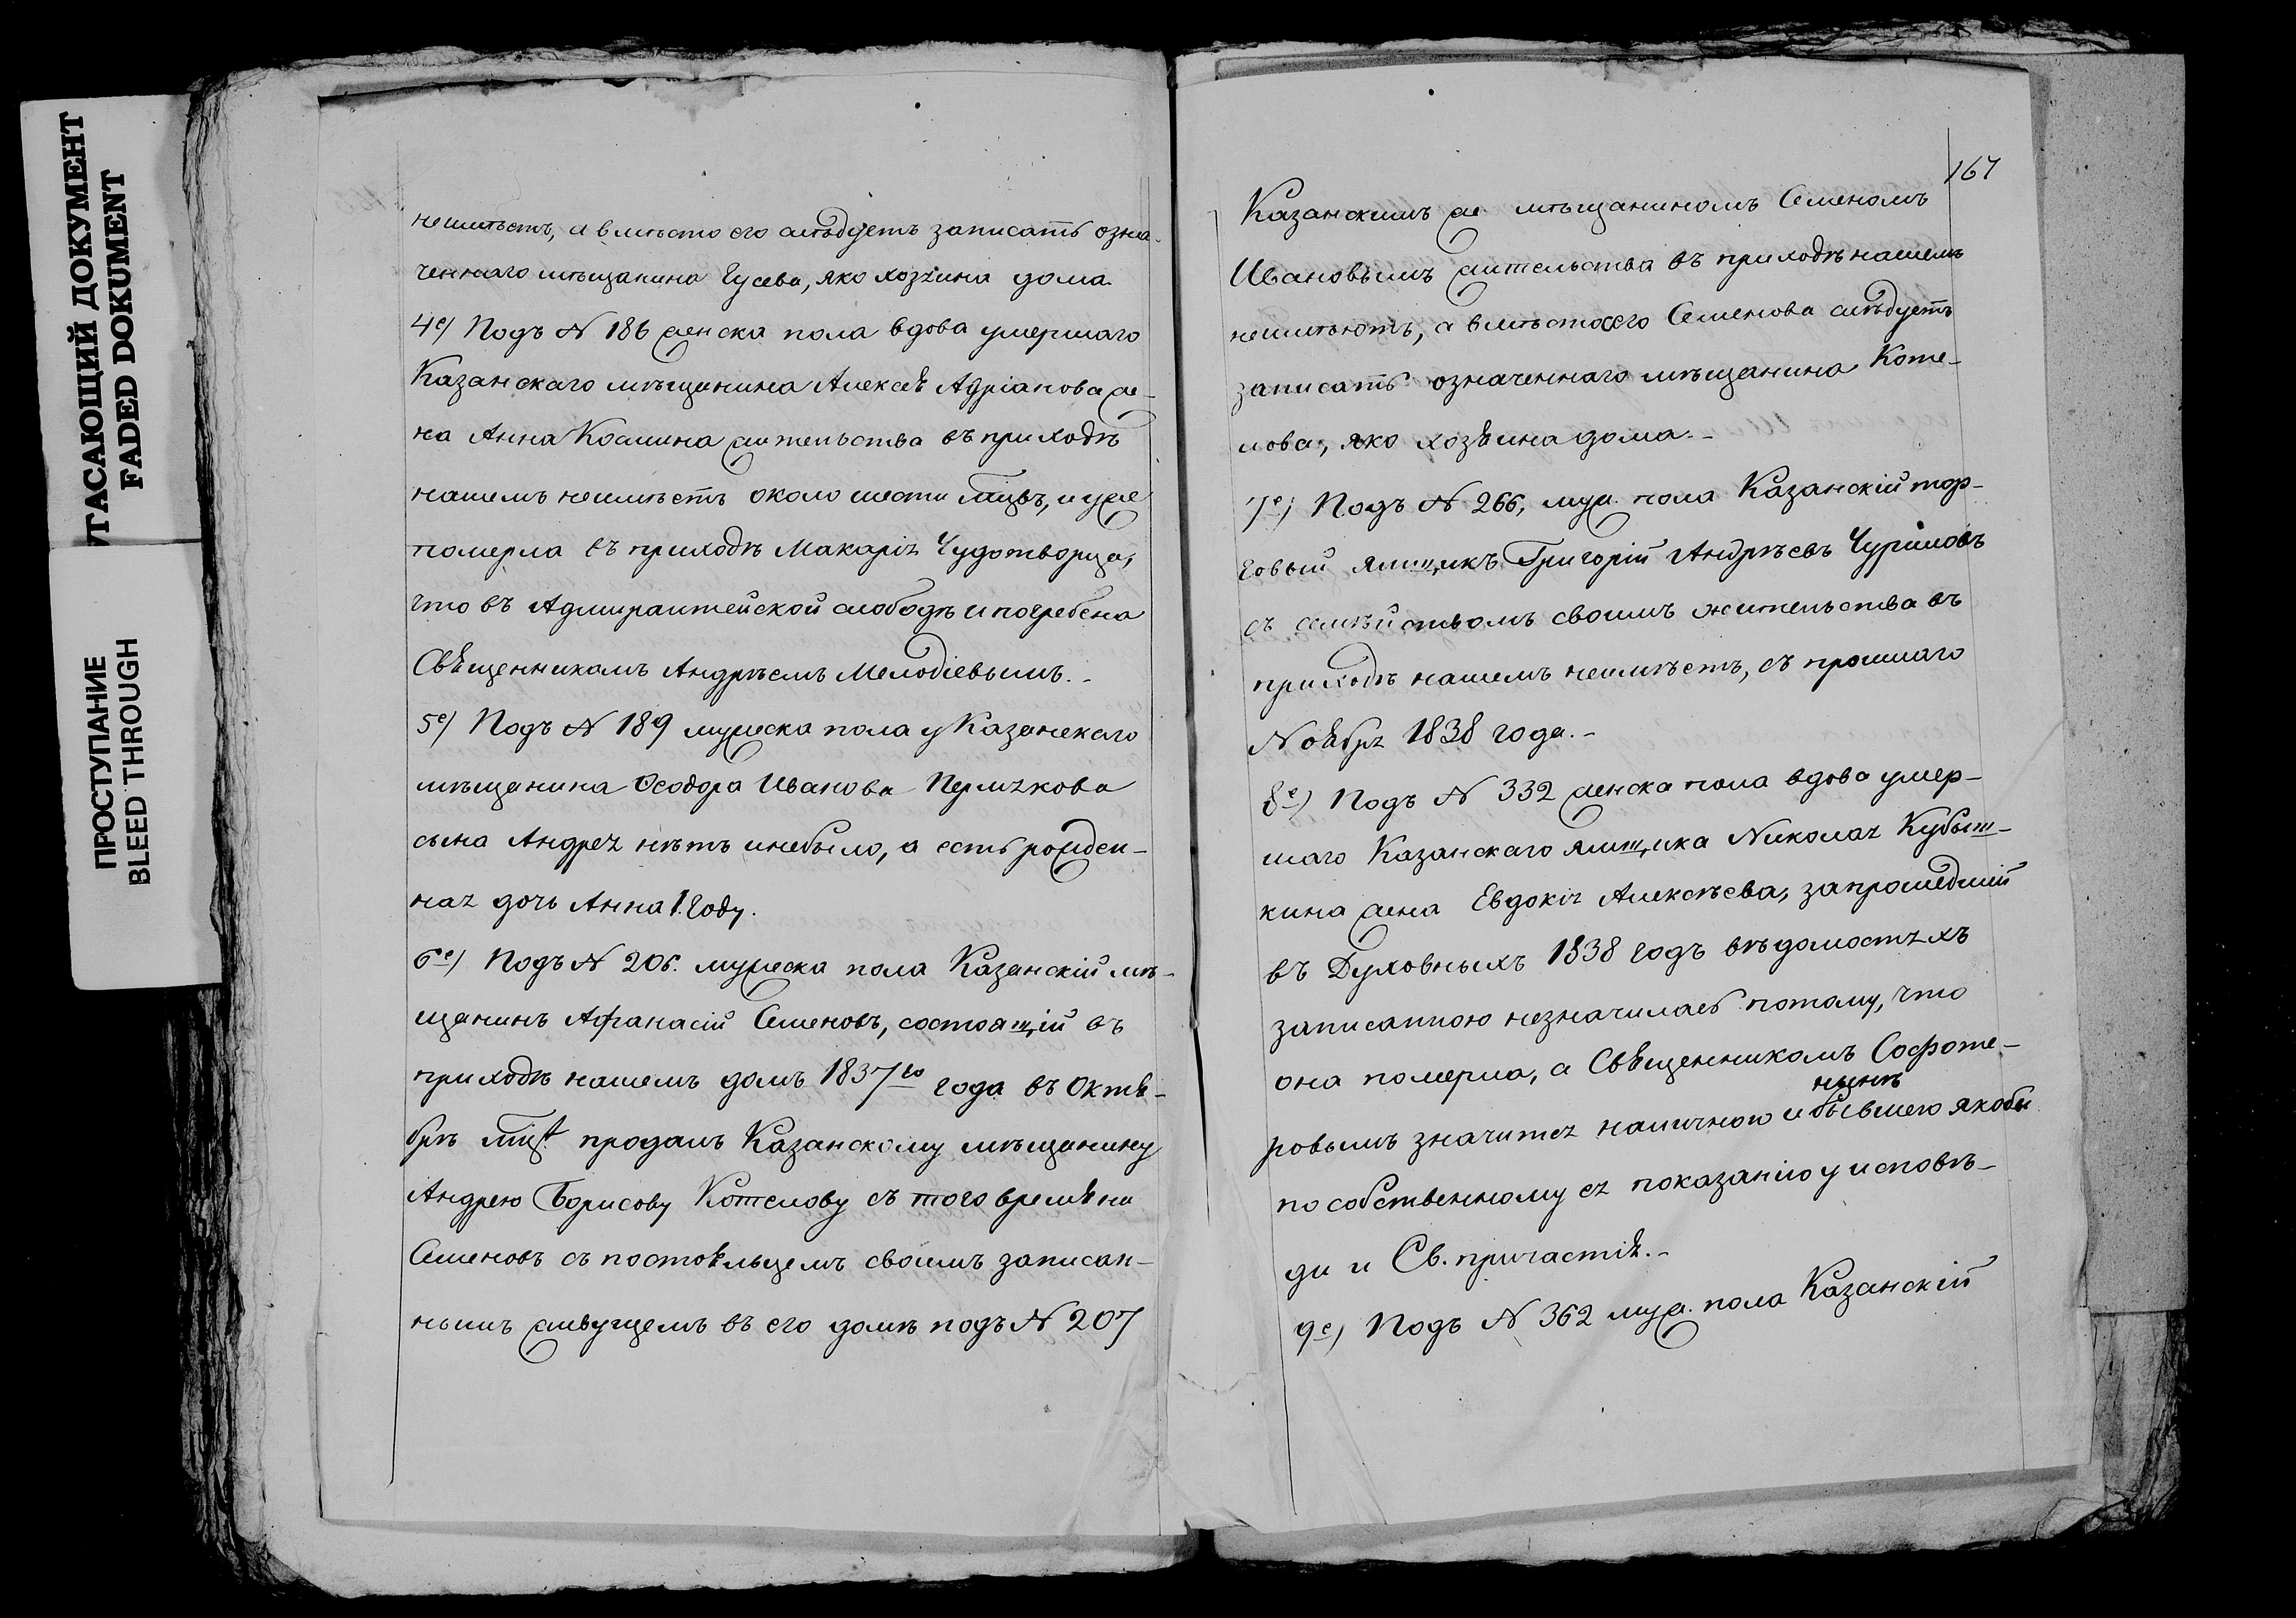 УГАСАЮЩИЙ ДОКУМЕНТ
FADED DOKUMENT
ПРОСТУПАНИЕ
BLEED THROUGH
неимѣетъ, а вмѣсто его слѣдуетъ записать озна-
ченнаго мѣщанина Гусева, яко хозяина дома.
4е) Подъ № 186 женска пола вдова умершаго
Казанскаго мѣщанина Алексѣя Адріанова же-
на Анна Космина жительства въ приходѣ
нашемъ неимѣетъ около шести мцовъ, и уже
померла въ приходѣ Макарія Чудотворца,
что въ Адмиралтейской слободѣ и погребена
Священникомъ Андреемъ Мелодіевымъ.-
5е) Подъ № 189 мужеска пола у Казанскаго
мѣщанина Ѳеодора Иванова Пермякова
сына Андрея нѣтъ инебыло, а есть рожден-
ная дочь Анна 1. году.
6е) Подъ № 206. мужеска пола Казанскій мѣ-
щанинъ Афанасій Семеновъ, состоящій въ
приходѣ нашемъ домъ 1837го года въ Октя-
брѣ продалъ Казанскому мѣщанину
Андрею Борисову Котелову съ того времяни
Семеновъ съ постояльцемъ своимъ записан-
нымъ живущемъ въ его домѣ подъ № 207
167
Казанскимъ же мѣщаниномъ Семеномъ
Ивановымъ жительства въ приходѣ нашемъ
неимѣютъ, а вмѣсто его Семенова слѣдуетъ
записать означеннаго мѣщанина Коте-
лова, яко хозяина дома.-
7е) Подъ № 266, муж. пола Казанскій тор-
говый ямщикъ Григорій Андрѣевъ Чуриловъ
съ семѣйствомъ своимъ жительства въ
приходѣ нашемъ неимѣетъ, съ прошлаго
Ноября 1838 года.-
8е) Подъ № 332 женска пола вдова умер-
шаго Казанскаго ямщика Николая Кубыш-
кина жена Евдокія Алексѣева, запрошедшій
въ Духовныхъ 1838 годъ вѣдомостяхъ
записанною незначилась потому, что
она померла, а Священникомъ Софоте-
нынѣ
ровымъ значится наличною и бывшею якобы
по собственному ея показанію у исповѣ-
ди и Св. причастія.-
9е) Подъ № 362 муж. пола Казанскій